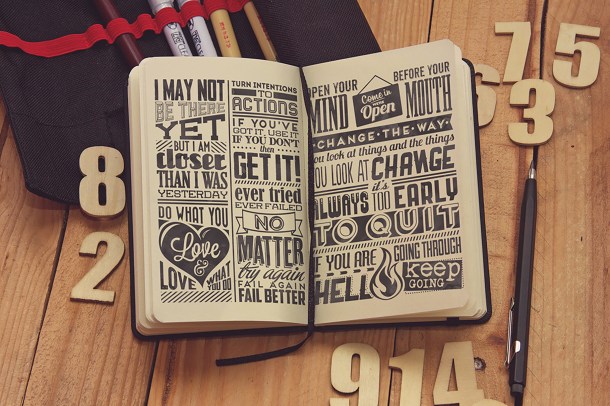 I MAY NOT
BE THERE
YET
BUT I AM
closer
THAN I WAS
YESTERDAY
DO WHAT YOU
Love
&
LOVE WHAT
YOU DO
TURN INTENTIONS
TO
ACTIONS
IF YOU'VE
GOT IT, USE IT
IF YOU DON'T
then
GET IT!
ever tried
EVER FAILED
NO
MATTER
try again
FAIL AGAIN
FAIL BETTER
OPEN YOUR
MIND
Come in
Open
BEFORE YOUR
MOUTH
CHANGE THE WAY
you look at things and the things
YOU LOOK AT CHANGE
it's
ALWAYS TOO EARLY
TO QUIT
IF YOU ARE GOING THROUGH
HELL
keep
GOING
8
2
7
5
6
3
9
1
4